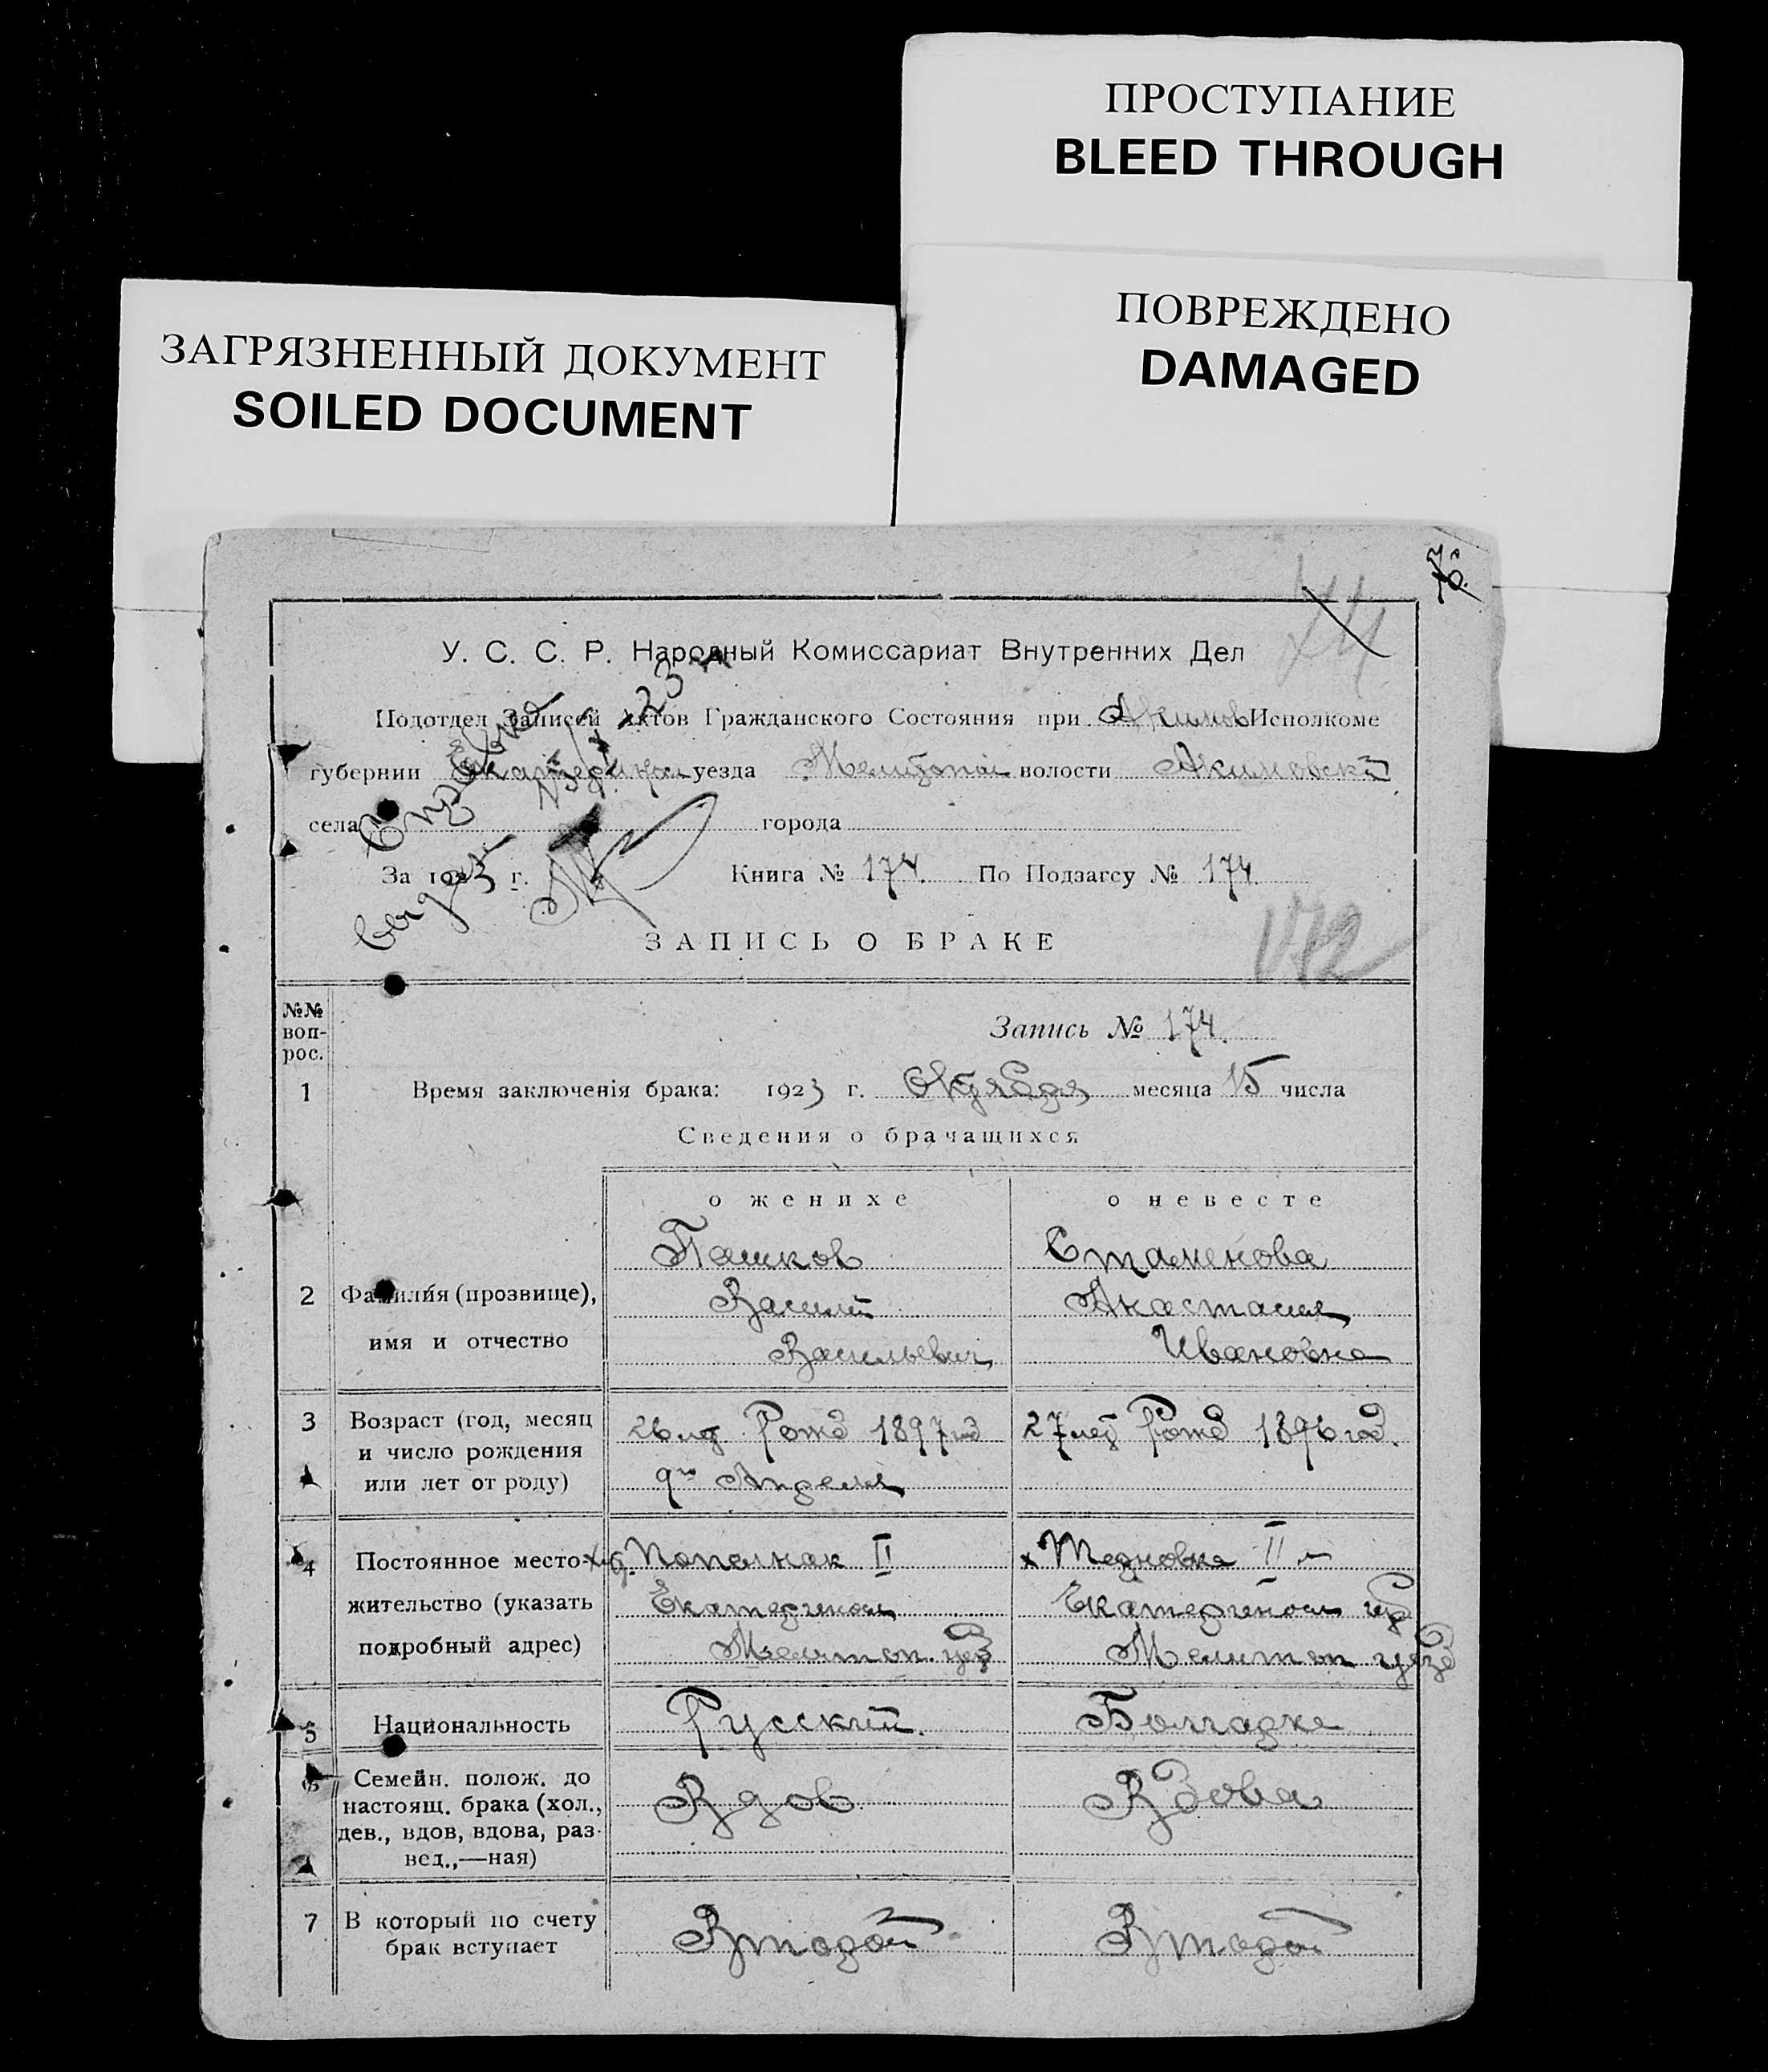 ПРОСТУПАНИЕ
BLEED THROUGH
ПОВРЕЖДЕНО
DAMAGED
ЗАГРЯЗНЕННЫЙ ДОКУМЕНТ
SOILED DOCUMENT
76.
У. С. С. Р. Народный Комиссариат Внутренних Дел
Подотдел Записей Актов Гражданского Состояния при Акимов Исполкоме
губернии Екатеринос уезда Мелитопол волости Акимовский
села города
За 1923 г. Книга № 174. По Подзагсу № 174.
ЗАПИСЬ О БРАКЕ
172
№№ воп-рос.
Запись № 174.
1 Время заключенія брака: 1923 г. Октября месяца 15 числа
Сведения о брачащихся
о женихе о невесте
Пашков Стаменова
2 Фамилия (прозвище), Василий Анастасия
имя и отчество Васильевич Ивановна
3 Возраст (год, месяц 26 лет Рожд 1897 год 27 лет Рожд 1896 год.
и число рождения
или лет от роду) 9го Апреля
4 Постоянное место- II II
жительство (указать Екатеринос Екатеринос губ
подробный адрес) Мелитоп. уезд Мелитоп уезд
5 Национальность Русский. Болгарка
6 Семейн. полож. до
настоящ. брака (хол., Вдов Вдова
дев., вдов, вдова, раз-
вед.,—ная)
7 В который по счету Второй Второй
брак вступает